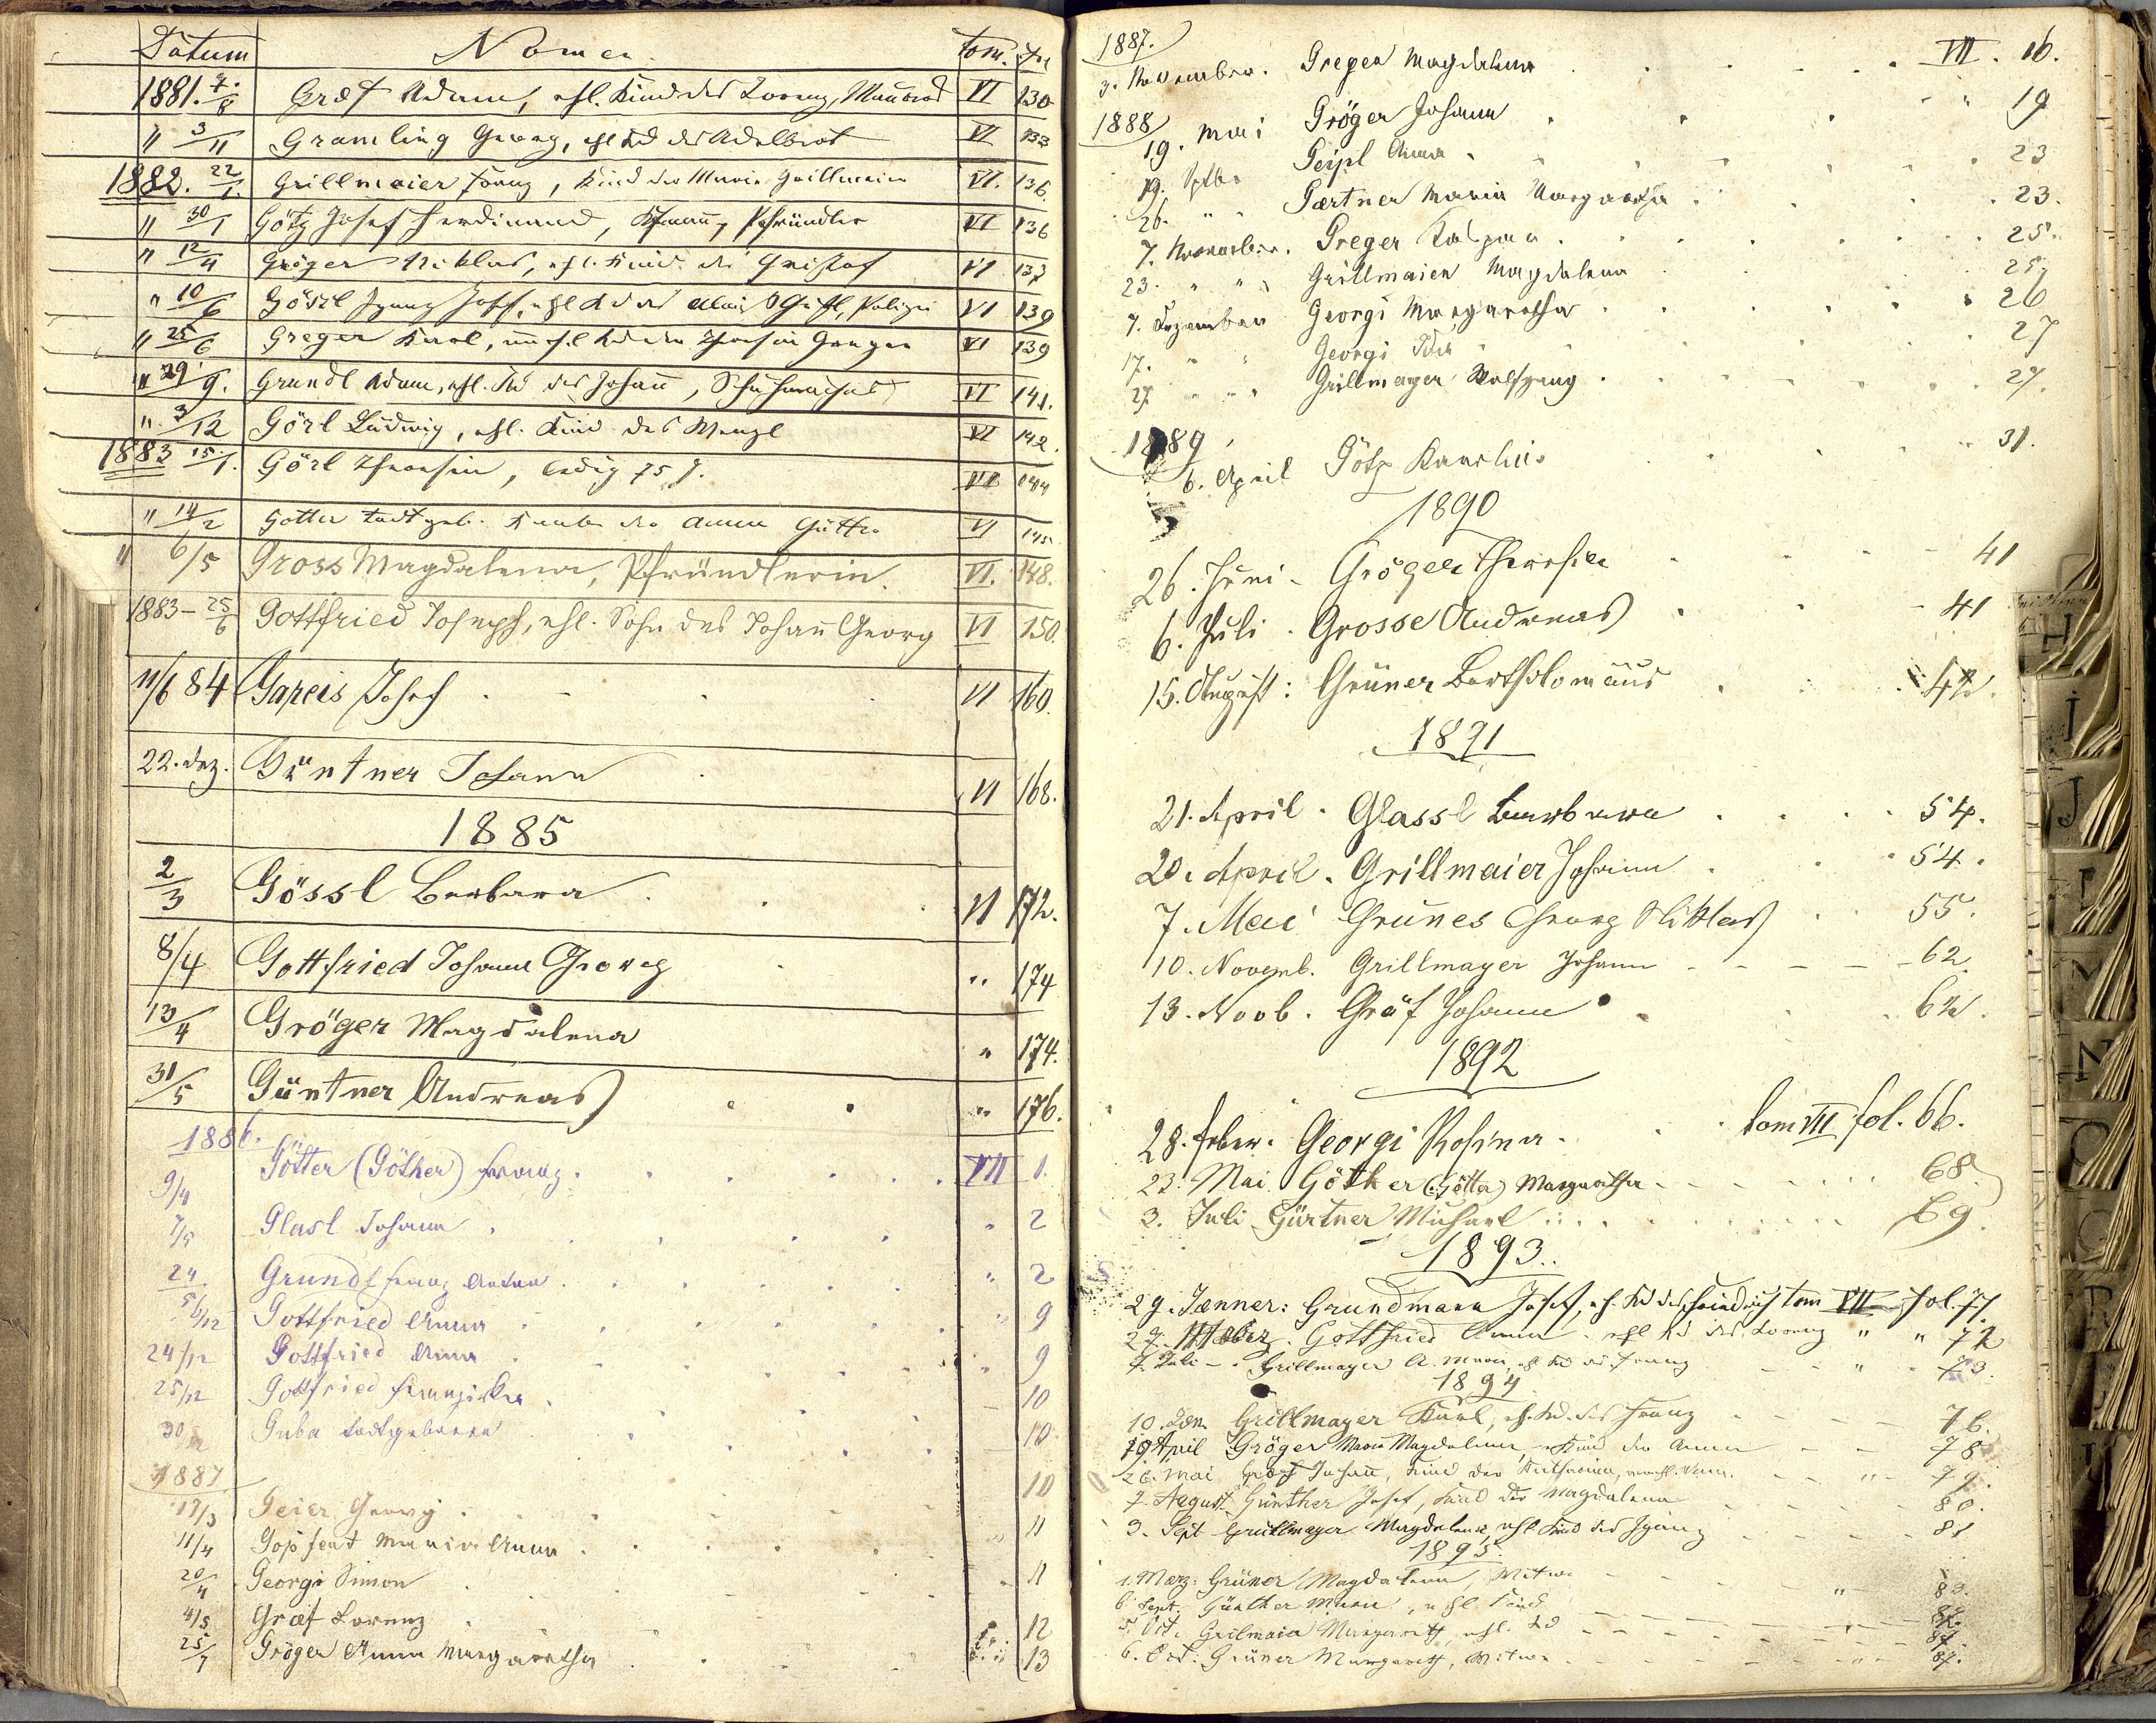 Datum Nomen. tom. fol
1881. 7./8 Gräf Adam, ehl. Kind des Lorenz, VI 130
" 3/11 Gramling Georg, ehl Kd des VI 133
1882. 22/1. Grillmaier Franz, Kind der Maria Grillmaier VI. 136.
" 30/1 Götz Josef Ferdinand, Pfründler VI 136
" 12/4 Gröger Niklas, ehl. Kind des VI 137
" 10/6 Gössl Ignaz Josef, ehl Kd des Alois Gössl, Polizei VI 139
" 25/6 Greger Karl, unehl Kd der Theresia Greger VI 139
" 29/9. Grundl Adam, ehl. Kd des Johann, Schuhmachers VI 141.
" 3/12 Görl Ludwig, ehl. Kind des Wenzl VI 142.
1883 15./1. Görl Theresia, ledig 75 J. VI 144
" 14/2 Götter todtgeb. Knabe der Anna Götter VI 145
" 6/5 Gross Magdalena, Pfründlerin. VI. 148.
1883 - 25/6 Gottfried Joseph, ehl. Sohn des Johann Georg VI 150.
11/6 84 Gareis Josef VI 160.
22. dez. Güntner Johann VI 168.
1885
2/3 Gössl Barbara VI 172.
8/4 Gottfried Johann Georg " 174
13/4 Gröger Magdalena " 174.
31/5 Güntner Andreas " 176.
1886.
9/4 Götter (Göther) Franz VII 1.
7/5 Glasl Johann " 2
24/5 Grundl Franz Anton " 2
6/12 Gottfried Anna " 9
24/12 Gottfried Anna " 9
25/12 Gottfried Franziska 10
30/12 Guba todtgeboren 10
1887
17/3 Geier Georg 10
11/4 Gopfert Maria Anna " 11
20/4 Georgi Simon " 11
4/5 Gräf Lorenz 12
25/7 Gröger Anna Margaretha 13
1887.
3. November. Greger Magdalena VII. 16.
1888
19. Mai Gröger Johann " 19
19. Septbr Geipl Anna 23
26. " " Gærtner Maria Margaretha 23.
7. November. Greger Kaspar 25.
23. " " Grillmaier Magdalena 25.
7. Dezember Georgi Margaretha 26
17. " " Georgi 27
27. " " Grillmayer Wolfgang 27.
1889.
6. April Götz Karolina 31.
1890
26. Juni - Gröger Theresia 41
6. Juli. Grosse Andreas 41
15. August: Grüner Bartholomäus 42.
1891
21. April. Glassl Barbara 54.
20. April. Grillmaier Johann 54.
7. Mai Grünes Georg Niklas 55.
10. Novemb. Grillmayer Johann 62.
13. Novb. Gräf Johann 62.
1892
28. Feber. Georgi Rosina. tom VII fol. 66.
23. Mai Göther (Götter) Margaretha 68.
3. Juli Gürtner Michael 69.
1893.
29. Jænner: Grundmann Josef, eh. Kd des Friedrich tom VII fol. 71
27. Gottfried Anna. ehl Kd des Lorenz " " 72
7. Juli - Grillmayer A. Maria, eh Kd des Franz " 73.
1894
10. Jæn. Grillmayer Karl, eh. Kd. des Franz 76.
19 April Gröger Maria Magdalena, Kind der Anna 78
26. Mai Græf Johann, Kind der Katharina, " 79.
7. August Günther Josef, Kind der Magdalena 80.
3. Sept Grillmayer Magdalena, ehl Kind des Ignaz 81
1895.
1. Merz: Grüner Magdalena, Witwe " 83.
6. Sept. Günther Maria, ehl Kind
5. Oct. Grilmaier Margareth, ehl. Kd 87.
6. Oct: Grüner Margareth, Witwe " 87.
H
I
J
N